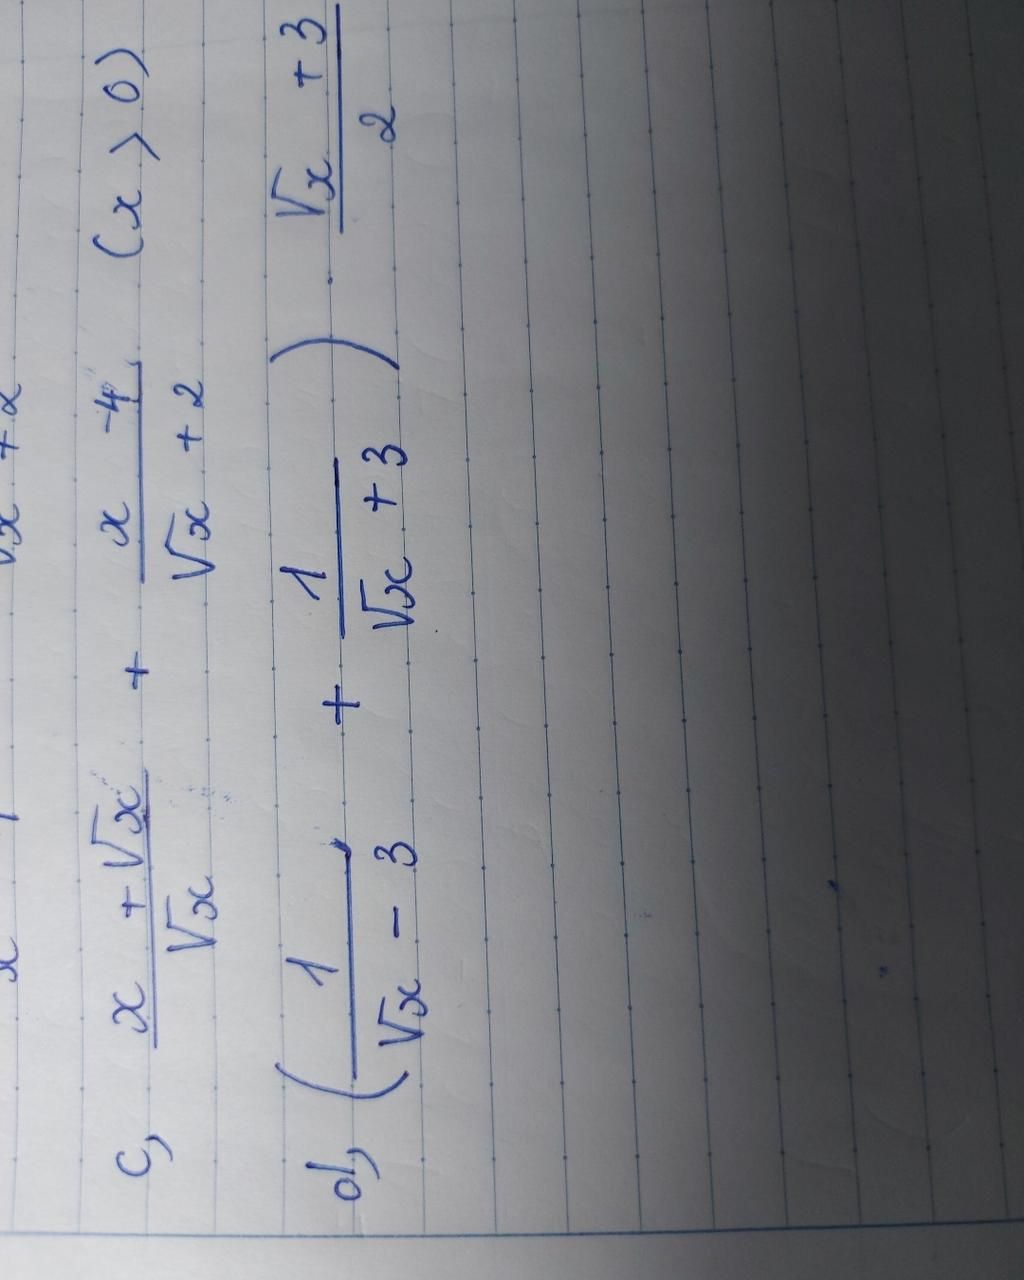 c, (x + √x)/(√x) + (x - 4)/(√x + 2) (x > 0)
d, (1/(√x - 3) + 1/(√x + 3)) . (√x + 3)/2